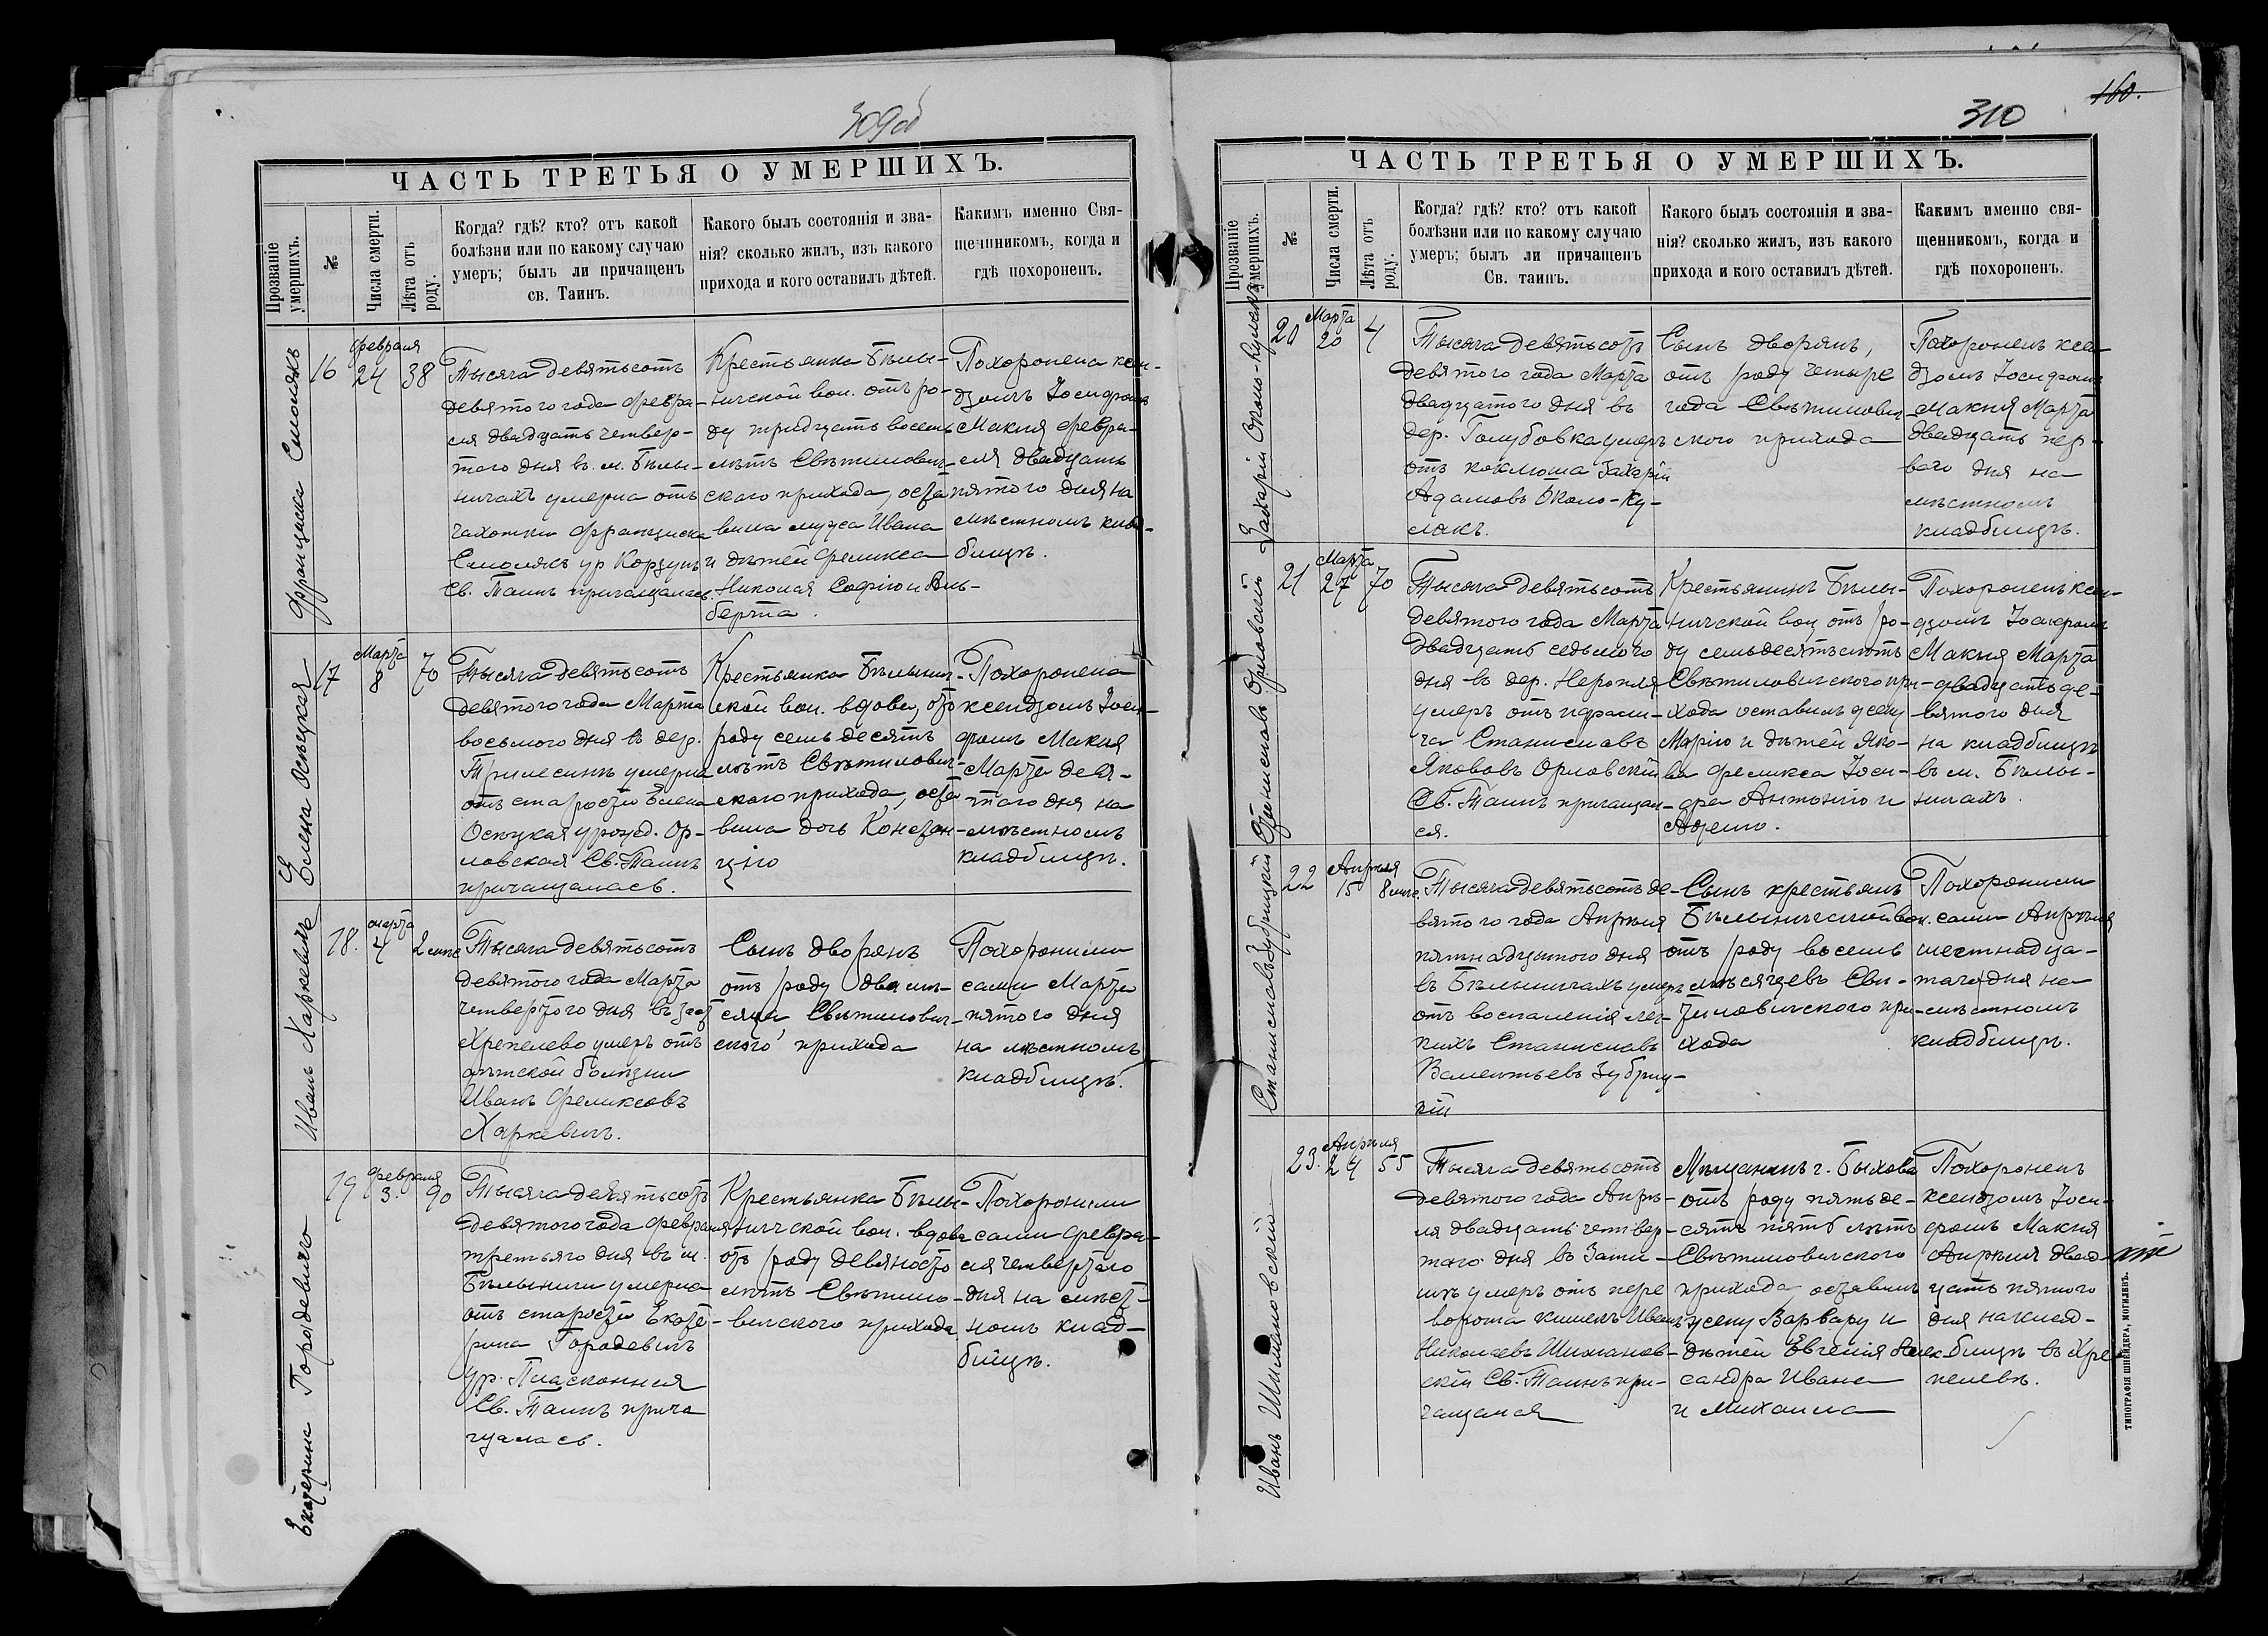 309об
ЧАСТЬ ТРЕТЬЯ О УМЕРШИХЪ.
Прозваніе умершихъ.
№
Числа смерти.
Лѣта отъ роду.
Когда? гдѣ? кто? отъ какой
болѣзни или по какому случаю
умеръ; былъ ли причащенъ
св. Таинъ.
Какого былъ состоянія и зва-
нія? сколько жилъ, изъ какого
прихода и кого оставилъ дѣтей.
Какимъ именно Свя-
щенникомъ, когда и
гдѣ похороненъ.
Франциска Смолякъ
16
февраля
24
38
Тысяча девятьсотъ
девятого года февра-
ля двадцать четвер-
того дня в. м. Бѣлы-
ничахъ умерла отъ
чахотки Франциска
Смолякъ ур Корзунъ
Св. Таинъ причащалась.
Крестьянка Бѣлы-
ничской вол. отъ ро-
ду тридцать восемь
лѣтъ Свѣтилович-
скаго прихода, оста
вила мужа Ивана
и дѣтей Феликса
Николая Софію и Аль-
берта.
Похоронена ксен-
дзомъ Іосифомъ
Макня февра-
ля двадцать
пятого дня на
мѣстномъ клад-
бищѣ.
Елена Осѣцкая
17
Марта
8
70
Тысяча девятьсотъ
девятого года Марта
восьмого дня въ дер.
Трилесинѣ умерла
отъ старости Елена
Осѣцкая урожд. Ор-
ловская Св. Таинъ
причащалась.
Крестьянка Бѣлынич-
ской вол. вдова, отъ
роду семьдесятъ
лѣтъ Свѣтилович-
скаго прихода, оста
вила дочь Констан-
цію
Похоронена
ксендзомъ Іоси-
фомъ Макня
Марта девя-
таго дня на
мѣстномъ
кладбищѣ.
Иванъ Харкевичъ
18.
марта
4
2 мѣс
Тысяча девятьсотъ
девятого года Марта
четвертого дня въ заст
Хрепелево умеръ отъ
дѣтской болѣзни
Иванъ Феликсовъ
Харкевичъ.
Сынъ дворянъ
отъ роду два мѣ-
сяца Свѣтилович-
ского прихода
Похоронили
сами Марта
пятого дня
на мѣстномъ
кладбищѣ.
Екатерина Городевичъ
19
февраля
3.
90
Тысяча девятьсотъ
девятого года февраля
третьяго дня въ м.
Бѣлыничи умерла
отъ старости Екате-
рина Городевичъ
ур. Пласконная
Св. Таинъ прича
щалась.
Крестьянка Бѣлы-
ничской вол. вдова
отъ роду девяносто
лѣтъ Свѣтило-
вичского прихода
Похоронили
сами февра-
ля четвертаго
дня на мѣст-
номъ клад-
бищѣ.
160.
310
ЧАСТЬ ТРЕТЬЯ О УМЕРШИХЪ.
Прозваніе умершихъ.
№
Числа смерти.
Лѣта отъ роду.
Когда? гдѣ? кто? отъ какой
болѣзни или по какому случаю
умеръ; былъ ли причащенъ
Св. таинъ.
Какого былъ состоянія и зва-
нія? сколько жилъ, изъ какого
прихода и кого оставилъ дѣтей.
Какимъ именно свя-
щенникомъ, когда и
гдѣ похороненъ.
Захарій Около-Кулакъ
20
Марта
20
4
Тысяча девятьсотъ
девятого года Марта
двадцатого дня въ
дер. Голубовка умеръ
отъ коклюша Захарій
Адамовъ Около-Ку-
лакъ.
Сынъ дворянъ,
отъ роду четыре
года Свѣтилович
ского прихода
Похороненъ ксен
дзомъ Іосифомъ
Макня Марта
двадцать пер-
ваго дня на
мѣстномъ
кладбищѣ.
Станиславъ Орловскій
21
Марта
27
70
Тысяча девятьсотъ
девятого года Марта
двадцать седьмого
дня въ дер. Неропля
умеръ отъ парали-
ча Станиславъ
Якововъ Орловскій
Св. Таинъ причащал-
ся.
Крестьянинъ Бѣлы-
ничской вол отъ ро-
ду семьдесятъ лѣтъ
Свѣтиловичского при-
хода оставилъ жену
Марію и дѣтей Яко-
ва Феликса Іоси-
фа Антонію и
Адемо.
Похороненъ ксен-
дзомъ Іосифомъ
Макня Марта
двадцать де-
вятого дня
на кладбищѣ
въ м. Бѣлы-
ничахъ.
Станиславъ Зубрицкій
22
Апрѣля
15
8 мѣс.
Тысяча девятьсотъ де-
вятого года Апрѣля
пятнадцатого дня
въ Бѣлыничахъ умеръ
отъ воспаленія лег-
кихъ Станиславъ
Валентьевъ Зубриц-
кій
Сынъ крестьянъ
Бѣлыничской вол.
отъ роду восемь
мѣсяцевъ Свѣ-
тиловичского при-
хода
Похоронили
сами Апрѣля
шестнадца-
таго дня на
мѣстномъ
кладбищѣ.
Иванъ Шимановскій
23.
Апрѣля
24
55
Тысяча девятьсотъ
девятого года Апрѣ-
ля двадцать четвер-
таго дня въ Зати-
шѣ умеръ отъ пере
ворота кишекъ Иванъ
Николаевъ Шиманов-
скій Св. Таинъ при-
чащался
Мѣщанинъ г. Быхова
отъ роду пятьде-
сятъ пять лѣтъ
Свѣтиловичского
прихода оставилъ
жену Варвару и
дѣтей Евгенія Алек-
сандра Ивана
и Михаила
Похороненъ
ксендзомъ Іоси-
фомъ Макня
Апрѣля двад-
цать пятого
дня на клад-
бищѣ въ Хре
пелевѣ.
ТИПОГРАФІЯ ШНЕЙДЕРА, МОГИЛЕВЪ.